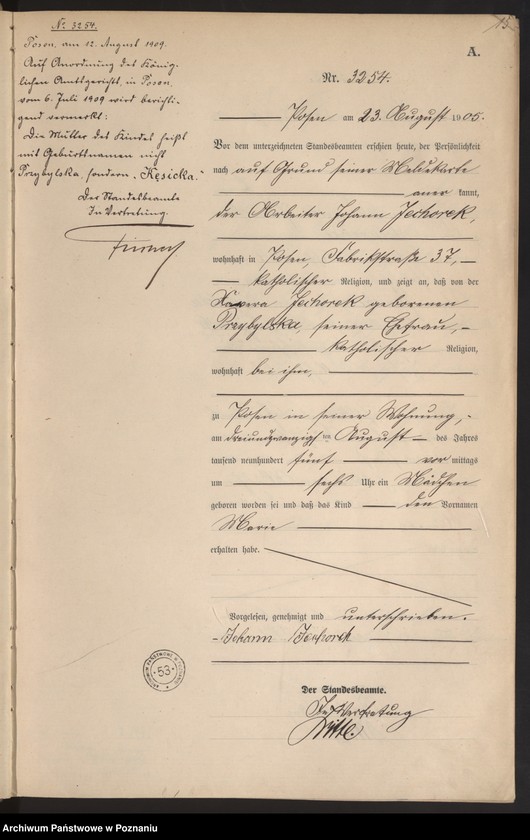 № 3254.
Posen, am 12. August 1909.
Auf Anordnung des König-
lichen Amtsgerichts in Posen
vom 6. Juli 1909 wird berichti-
gend vermerkt:
Die Mutter des Kindes heißt
mit Geburtsnamen nicht
Przybylska, sondern „Kęsicka."
Der Standesbeamte
In Vertretung.
A.
Nr. 3254.
Posen am 23. August 1905.
Vor dem unterzeichneten Standesbeamten erschien heute, der Persönlichkeit
nach auf Grund seiner Meldekarte
aner kannt,
der Arbeiter Johann Jechorek,
wohnhaft in Posen, Fabrikstraße 37,
katholischer Religion, und zeigt an, daß von der
Xavera Jechorek geborenen
Przybylska, seiner Ehefrau,
katholischer Religion,
wohnhaft bei ihm,
zu Posen in seiner Wohnung,
am dreiundzwanzigsten August des Jahres
tausend neunhundert fünf vor mittags
um sechs Uhr ein Mädchen
geboren worden sei und daß das Kind den Vornamen
Marie
erhalten habe.
Vorgelesen, genehmigt und unterschrieben.
Johann Jechorek
Der Standesbeamte.
In Vertretung
ARCHIWUM PAŃSTWOWE W POZNANIU
53
Archiwum Państwowe w Poznaniu